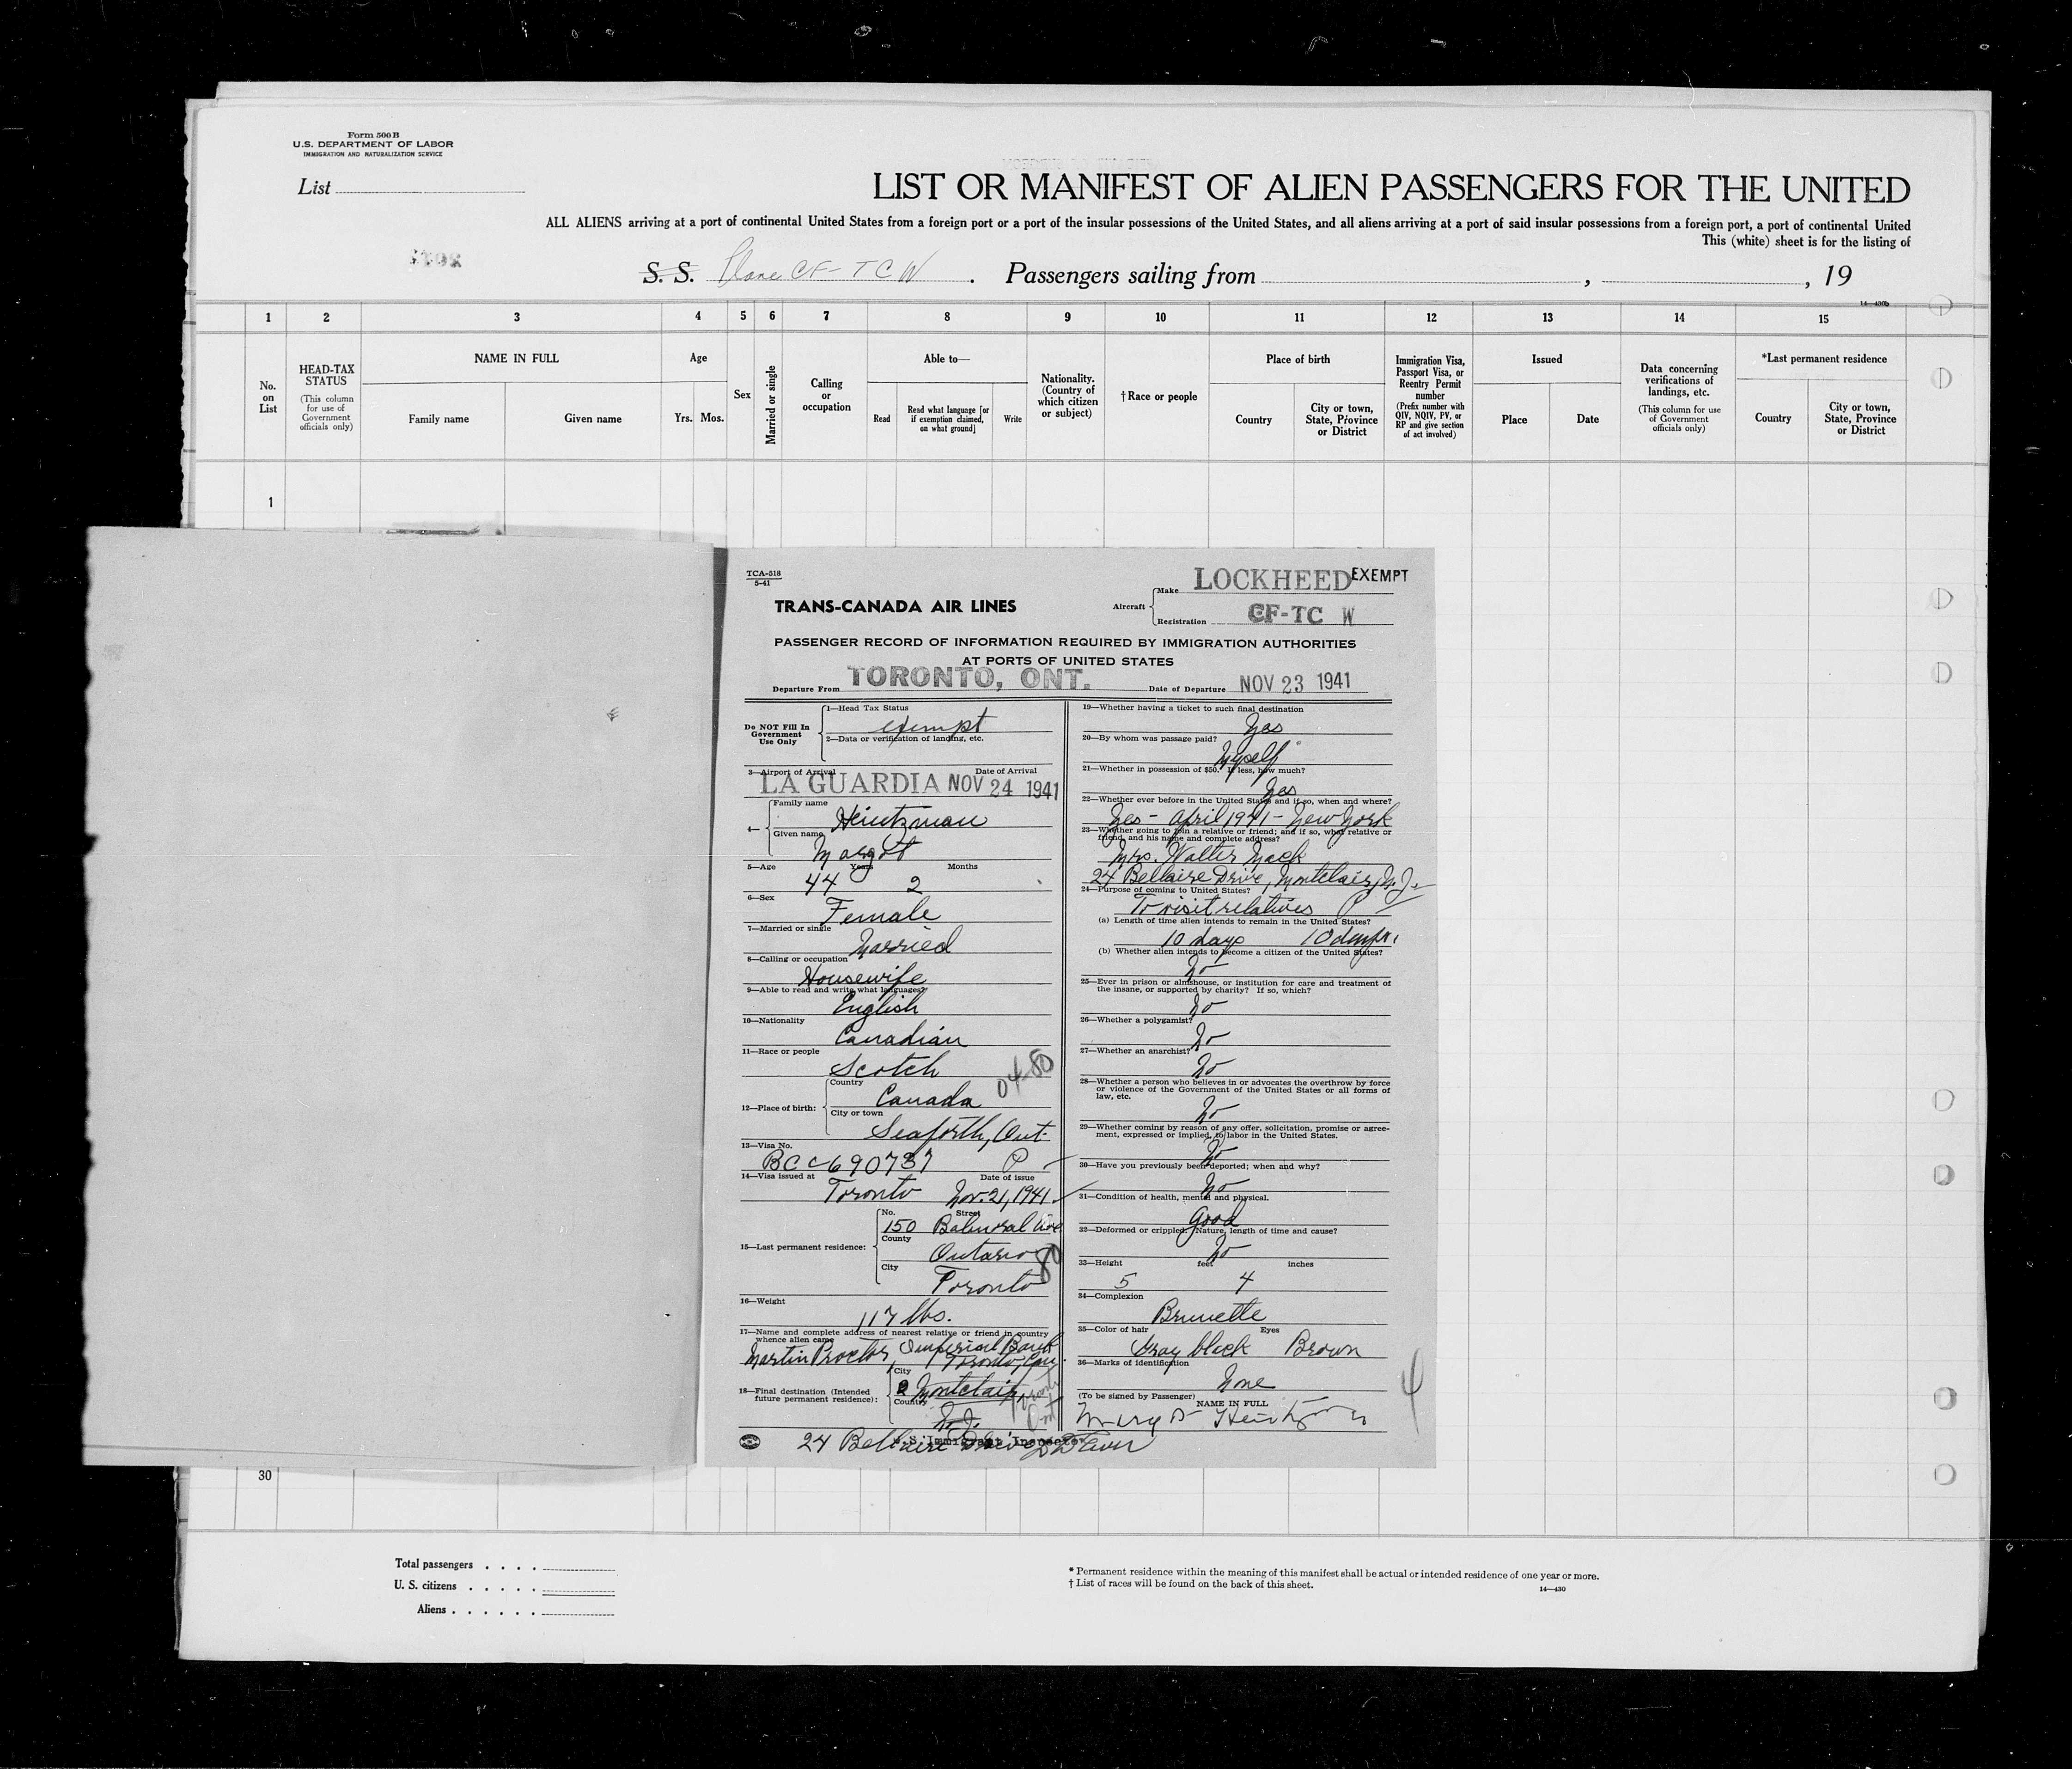 Form 500 B
U.S. DEPARTMENT OF LABOR
IMMIGRATION AND NATURALIZATION SERVICE
List
LIST OR MANIFEST OF ALIEN PASSENGERS FOR THE UNITED
ALL ALIENS arriving at a port of continental United States from a foreign port or a port of the insular possessions of the United States, and all aliens arriving at a port of said insular possessions from a foreign port, a port of continental United
This (white) sheet is for the listing of
S. S. Plane CF-TCW. Passengers sailing from , , 19
14—430b
1 2 3 4 5 6 7 8 9 10 11 12 13 14 15
No. on List
HEAD-TAX STATUS
(This column for use of Government officials only)
NAME IN FULL
Family name
Given name
Age
Yrs. Mos.
Sex
Married or single
Calling or occupation
Able to—
Read
Read what language [or if exemption claimed, on what ground]
Write
Nationality. (Country of which citizen or subject)
†Race or people
Place of birth
Country
City or town, State, Province or District
Immigration Visa, Passport Visa, or Reentry Permit number
(Prefix number with QIV, NQIV, PV, or RP and give section of act involved)
Issued
Place
Date
Data concerning verifications of landings, etc.
(This column for use of Government officials only)
*Last permanent residence
Country
City or town, State, Province or District
1
TCA-518
5-41
TRANS-CANADA AIR LINES
Aircraft
Make LOCKHEED EXEMPT
Registration CF-TC W
PASSENGER RECORD OF INFORMATION REQUIRED BY IMMIGRATION AUTHORITIES
AT PORTS OF UNITED STATES
Departure From TORONTO, ONT. Date of Departure NOV 23 1941
Do NOT Fill In Government Use Only
1—Head Tax Status
exempt
2—Data or verification of landing, etc.
3—Airport of Arrival Date of Arrival
LA GUARDIA NOV 24 1941
4—
Family name
Heintzman
Given name
Margot
5—Age Years Months
44 2
6—Sex
Female
7—Married or single
Married
8—Calling or occupation
Housewife
9—Able to read and write what languages?
English
10—Nationality
Canadian
11—Race or people
Scotch
04-80
12—Place of birth:
Country
Canada
City or town
Seaforth, Ont.
13—Visa No.
BCC 690737 P
14—Visa issued at Date of issue
Toronto Nov. 21, 1941
15—Last permanent residence:
No. Street
150 Balmoral Ave.
County
Ontario
80
City
Toronto
16—Weight
117 lbs.
17—Name and complete address of nearest relative or friend in country whence alien came
Martin Proctor, Imperial Bank
Toronto, Can.
18—Final destination (Intended future permanent residence):
City
Montclair
Country
N.J.
Toronto Ont
24 Bellaire Drive
U.S. Immigrant Inspector
19—Whether having a ticket to such final destination
Yes
20—By whom was passage paid?
Myself
21—Whether in possession of $50. If less, how much?
Yes
22—Whether ever before in the United States and if so, when and where?
Yes - April 1941 - New York
23—Whether going to join a relative or friend; and if so, what relative or friend, and his name and complete address?
Mrs. Walter Mack
24 Bellaire Drive, Montclair, N.J.
24—Purpose of coming to United States?
To visit relatives P
(a) Length of time alien intends to remain in the United States?
10 days 10 days
(b) Whether alien intends to become a citizen of the United States?
No
25—Ever in prison or almshouse, or institution for care and treatment of the insane, or supported by charity? If so, which?
No
26—Whether a polygamist?
No
27—Whether an anarchist?
No
28—Whether a person who believes in or advocates the overthrow by force or violence of the Government of the United States or all forms of law, etc.
No
29—Whether coming by reason of any offer, solicitation, promise or agreement, expressed or implied, to labor in the United States.
No
30—Have you previously been deported; when and why?
No
31—Condition of health, mental and physical.
Good
32—Deformed or crippled. Nature, length of time and cause?
No
33—Height feet inches
5 4
34—Complexion
Brunette
35—Color of hair Eyes
Gray black Brown
36—Marks of identification
None
(To be signed by Passenger)
NAME IN FULL
Margot Heintzman
4
30
Total passengers
U. S. citizens
Aliens
* Permanent residence within the meaning of this manifest shall be actual or intended residence of one year or more.
† List of races will be found on the back of this sheet.
14—430